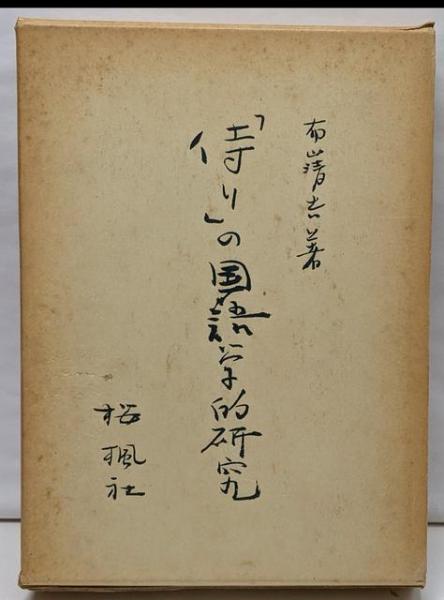 布山清吉著
「侍り」の国語学的研究
桜楓社